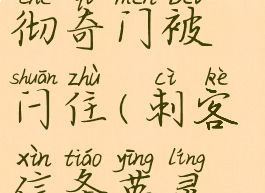 彻奇门被
shuān zhù cì kè
闩住(刺客
xìn tiáo yīng líng
信条英灵